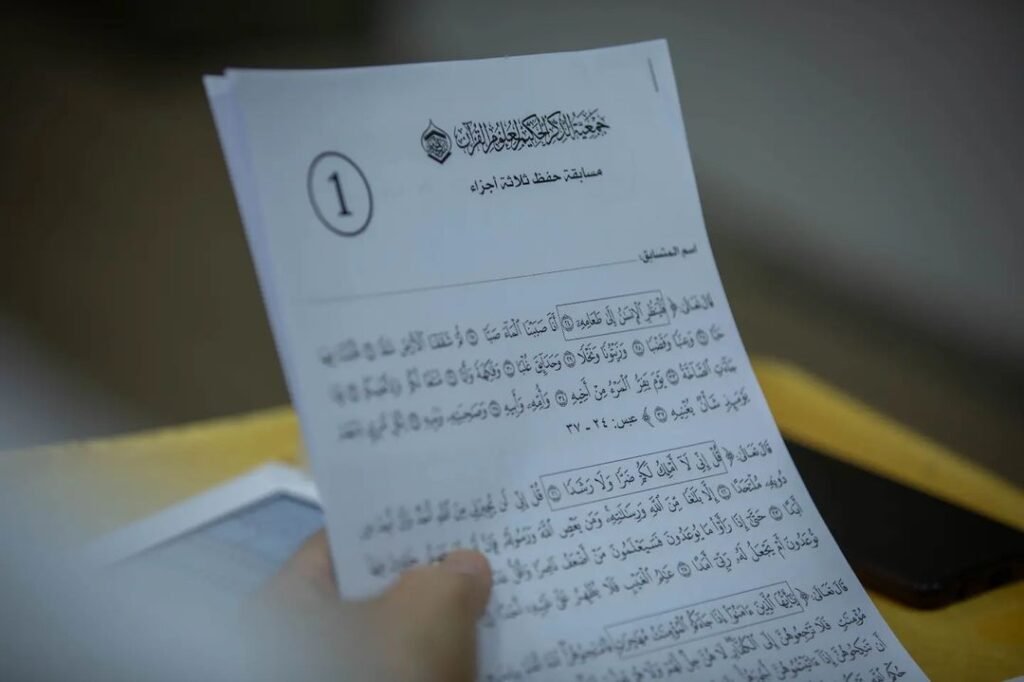 جمعية الذكر الحكيم لعلوم القرآن
مسابقة حفظ ثلاثة اجزاء
1
اسم المتسابق:
قال تعالى: ﴿ فَلْيَنظُرِ الْإِنسَٰنُ إِلَىٰ طَعَامِهِۦٓ ٢٤ أَنَّا صَبَبْنَا الْمَآءَ صَبًّا ٢٥ ثُمَّ شَقَقْنَا الْأَرْضَ شَقًّا ٢٦ فَأَنۢبَتْنَا فِيهَا
حَبًّا ٢٧ وَعِنَبًا وَقَضْبًا ٢٨ وَزَيْتُونًا وَنَخْلًا ٢٩ وَحَدَآئِقَ غُلْبًا ٣٠ وَفَٰكِهَةً وَأَبًّا ٣١ مَّتَٰعًا لَّكُمْ وَلِأَنْعَٰمِكُمْ ٣٢ فَإِذَا
جَآءَتِ الصَّآخَّةُ ٣٣ يَوْمَ يَفِرُّ الْمَرْءُ مِنْ أَخِيهِ ٣٤ وَأُمِّهِۦ وَأَبِيهِ ٣٥ وَصَٰحِبَتِهِۦ وَبَنِيهِ ٣٦ لِكُلِّ امْرِئٍ مِّنْهُمْ
يَوْمَئِذٍ شَأْنٌ يُغْنِيهِ ٣٧ ﴾ عبس: ٢٤ - ٣٧
قال تعالى: ﴿ قُلْ إِنِّي لَآ أَمْلِكُ لَكُمْ ضَرًّا وَلَا رَشَدًا ٢١ قُلْ إِنِّي لَن يُجِيرَنِي مِنَ اللَّهِ أَحَدٌ وَلَنْ أَجِدَ مِن
دُونِهِۦ مُلْتَحَدًا ٢٢ إِلَّا بَلَٰغًا مِّنَ اللَّهِ وَرِسَٰلَٰتِهِۦ وَمَن يَعْصِ اللَّهَ وَرَسُولَهُۥ فَإِنَّ
أَبَدًا ٢٣ حَتَّىٰٓ إِذَا رَأَوْا۟ مَا يُوعَدُونَ فَسَيَعْلَمُونَ مَنْ أَضْعَفُ نَاصِرًا وَأَقَلُّ
تُوعَدُونَ أَمْ يَجْعَلُ لَهُۥ رَبِّيٓ أَمَدًا ٢٥ عَٰلِمُ الْغَيْبِ فَلَا يُظْهِرُ عَلَىٰ غَيْبِهِۦٓ أَحَدًا
قال تعالى: ﴿ يَٰٓأَيُّهَا الَّذِينَ ءَامَنُوٓا۟ إِذَا جَآءَكُمُ الْمُؤْمِنَٰتُ مُهَٰجِرَٰتٍ فَامْتَحِنُوهُنَّ
مُؤْمِنَٰتٍ فَلَا تَرْجِعُوهُنَّ إِلَى الْكُفَّارِ لَا هُنَّ حِلٌّ لَّهُمْ وَلَا هُمْ
أَن تَنكِحُوهُنَّ إِذَآ ءَاتَيْتُمُوهُنَّ أُجُورَهُنَّ